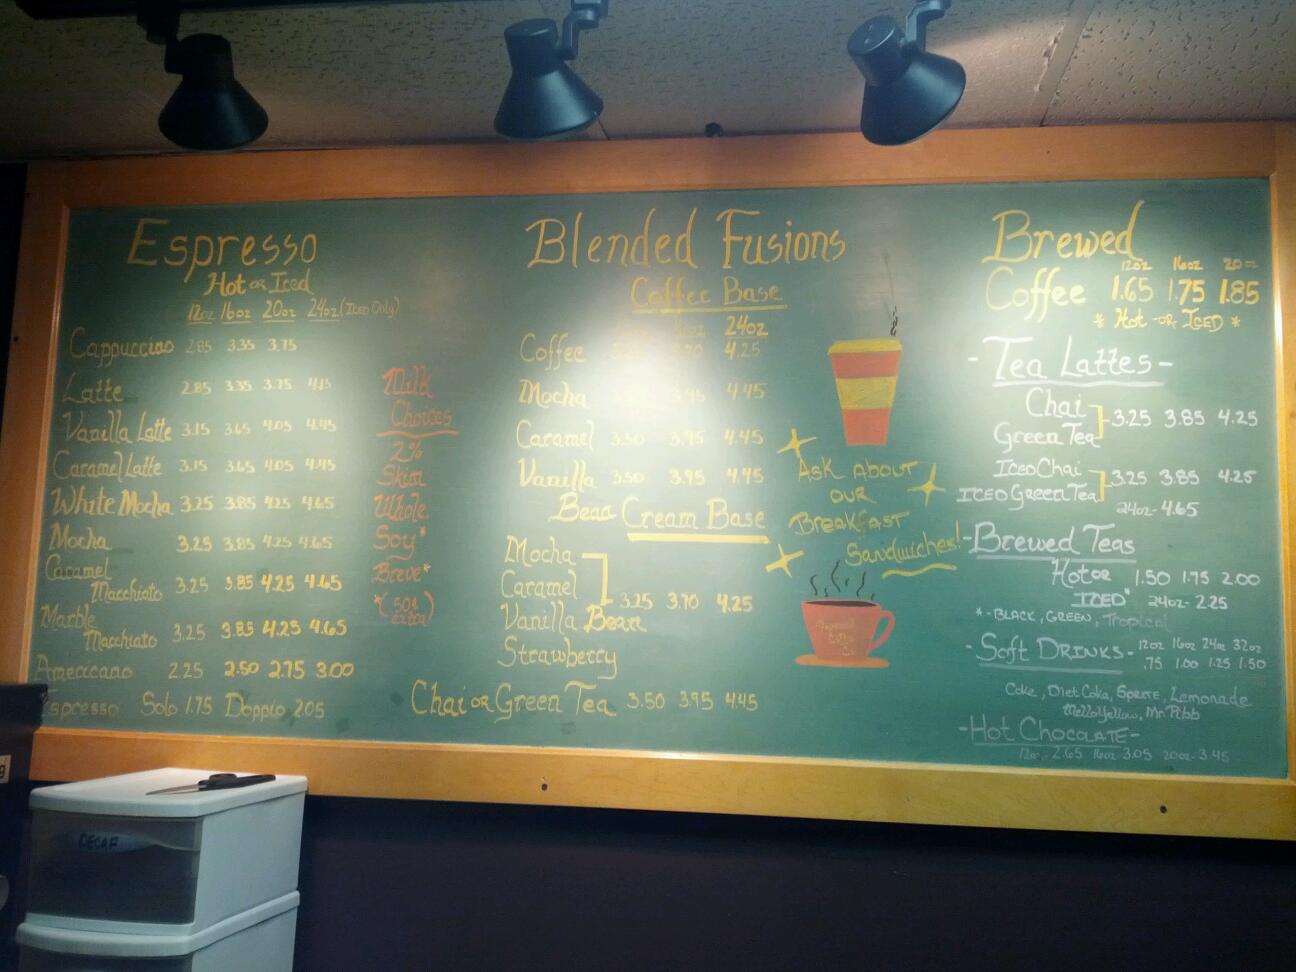 Espresso
Hot or Iced
12oz 16oz 20oz 24oz (Iced Only)
Cappuccino 2.85 3.35 3.75
Latte 2.85 3.35 3.75 4.15
Vanilla Latte 3.15 3.65 4.05 4.45
Caramel Latte 3.15 3.65 4.05 4.45
White Mocha 3.25 3.85 4.25 4.65
Mocha 3.25 3.85 4.25 4.65
Caramel
Macchiato 3.25 3.85 4.25 4.65
Marble
Macchiato 3.25 3.85 4.25 4.65
Americano 2.25 2.50 2.75 3.00
Espresso Solo 1.75 Doppio 2.05
Milk
Choices
2%
Skim
Whole
Soy*
Breve*
*(50¢
extra)
Blended Fusions
Coffee Base
24oz
Coffee 4.25
Mocha 3.95 4.45
Caramel 3.50 3.95 4.45
Vanilla 3.50 3.95 4.45
Bean Cream Base
Mocha
Caramel
3.25 3.70 4.25
Vanilla Bean
Strawberry
Chai or Green Tea 3.50 3.95 4.45
Ask About
our
Breakfast
Sandwiches!
Brewed
12oz 16oz 20oz
Coffee 1.65 1.75 1.85
* Hot -or Iced *
-Tea Lattes-
Chai
3.25 3.85 4.25
Green Tea
Iced Chai
3.25 3.85 4.25
Iced Green Tea
24oz- 4.65
-Brewed Teas
Hot or 1.50 1.75 2.00
Iced* 24oz- 2.25
*-Black, Green, Tropical
-Soft Drinks- 12oz 16oz 24oz 32oz
.75 1.00 1.25 1.50
Coke, Diet Coke, Sprite, Lemonade
Mello Yellow, Mr. Pibb
-Hot Chocolate-
12oz- 2.65 16oz- 3.05 20oz- 3.45
DECAF